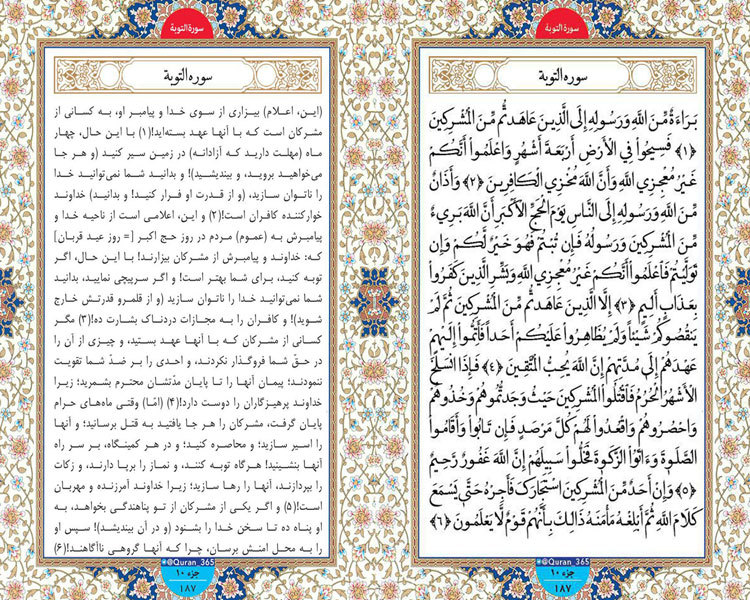 سورة التوبة
سوره التوبة
بَرَاءَةٌ مِّنَ اللَّهِ وَرَسُولِهِ إِلَى الَّذِينَ عَاهَدتُّم مِّنَ الْمُشْرِكِينَ
﴿۱﴾ فَسِيحُوا فِي الْأَرْضِ أَرْبَعَةَ أَشْهُرٍ وَاعْلَمُوا أَنَّكُمْ
غَيْرُ مُعْجِزِي اللَّهِ وَأَنَّ اللَّهَ مُخْزِي الْكَافِرِينَ ﴿۲﴾ وَأَذَانٌ
مِّنَ اللَّهِ وَرَسُولِهِ إِلَى النَّاسِ يَوْمَ الْحَجِّ الْأَكْبَرِ أَنَّ اللَّهَ بَرِيءٌ
مِّنَ الْمُشْرِكِينَ وَرَسُولُهُ فَإِن تُبْتُمْ فَهُوَ خَيْرٌ لَّكُمْ وَإِن
تَوَلَّيْتُمْ فَاعْلَمُوا أَنَّكُمْ غَيْرُ مُعْجِزِي اللَّهِ وَبَشِّرِ الَّذِينَ كَفَرُوا
بِعَذَابٍ أَلِيمٍ ﴿۳﴾ إِلَّا الَّذِينَ عَاهَدتُّم مِّنَ الْمُشْرِكِينَ ثُمَّ لَمْ
يَنقُصُوكُمْ شَيْئًا وَلَمْ يُظَاهِرُوا عَلَيْكُمْ أَحَدًا فَأَتِمُّوا إِلَيْهِمْ
عَهْدَهُمْ إِلَى مُدَّتِهِمْ إِنَّ اللَّهَ يُحِبُّ الْمُتَّقِينَ ﴿۴﴾ فَإِذَا انسَلَخَ
الْأَشْهُرُ الْحُرُمُ فَاقْتُلُوا الْمُشْرِكِينَ حَيْثُ وَجَدتُّمُوهُمْ وَخُذُوهُمْ
وَاحْصُرُوهُمْ وَاقْعُدُوا لَهُمْ كُلَّ مَرْصَدٍ فَإِن تَابُوا وَأَقَامُوا
الصَّلَوةَ وَءَاتَوُا الزَّكَوةَ فَخَلُّوا سَبِيلَهُمْ إِنَّ اللَّهَ غَفُورٌ رَّحِيمٌ
﴿۵﴾ وَإِنْ أَحَدٌ مِّنَ الْمُشْرِكِينَ اسْتَجَارَكَ فَأَجِرْهُ حَتَّى يَسْمَعَ
كَلَامَ اللَّهِ ثُمَّ أَبْلِغْهُ مَأْمَنَهُ ذَلِكَ بِأَنَّهُمْ قَوْمٌ لَّا يَعْلَمُونَ ﴿۶﴾
@Quran_365
جزء ۱۰
۱۸۷
سورة التوبة
سوره التوبة
(این، اعلام) بیزاری از سوی خدا و پیامبر او، به کسانی از
مشرکان است که با آنها عهد بسته‌اید!(۱) با این حال، چهار
ماه (مهلت دارید که آزادانه) در زمین سیر کنید (و هر جا
می‌خواهید بروید، و بیندیشید)! و بدانید شما نمی‌توانید خدا
را ناتوان سازید، (و از قدرت او فرار کنید! و بدانید) خداوند
خوارکننده کافران است!(۲) و این، اعلامی است از ناحیه خدا و
پیامبرش به (عموم) مردم در روز حج اکبر [= روز عید قربان]
که: خداوند و پیامبرش از مشرکان بیزارند! با این حال، اگر
توبه کنید، برای شما بهتر است! و اگر سرپیچی نمایید، بدانید
شما نمی‌توانید خدا را ناتوان سازید (و از قلمرو قدرتش خارج
شوید)! و کافران را به مجازات دردناک بشارت ده!(۳) مگر
کسانی از مشرکان که با آنها عهد بستید، و چیزی از آن را
در حقّ شما فروگذار نکردند، و احدی را بر ضدّ شما تقویت
ننمودند؛ پیمان آنها را تا پایان مدّتشان محترم بشمرید؛ زیرا
خداوند پرهیزگاران را دوست دارد!(۴) (امّا) وقتی ماه‌های حرام
پایان گرفت، مشرکان را هر جا یافتید به قتل برسانید؛ و آنها
را اسیر سازید؛ و محاصره کنید؛ و در هر کمینگاه، بر سر راه
آنها بنشینید! هرگاه توبه کنند، و نماز را برپا دارند، و زکات
را بپردازند، آنها را رها سازید؛ زیرا خداوند آمرزنده و مهربان
است!(۵) و اگر یکی از مشرکان از تو پناهندگی بخواهد، به
او پناه ده تا سخن خدا را بشنود (و در آن بیندیشد)! سپس او
را به محل امنش برسان، چرا که آنها گروهی ناآگاهند!(۶)
@Quran_365
جزء ۱۰
۱۸۷